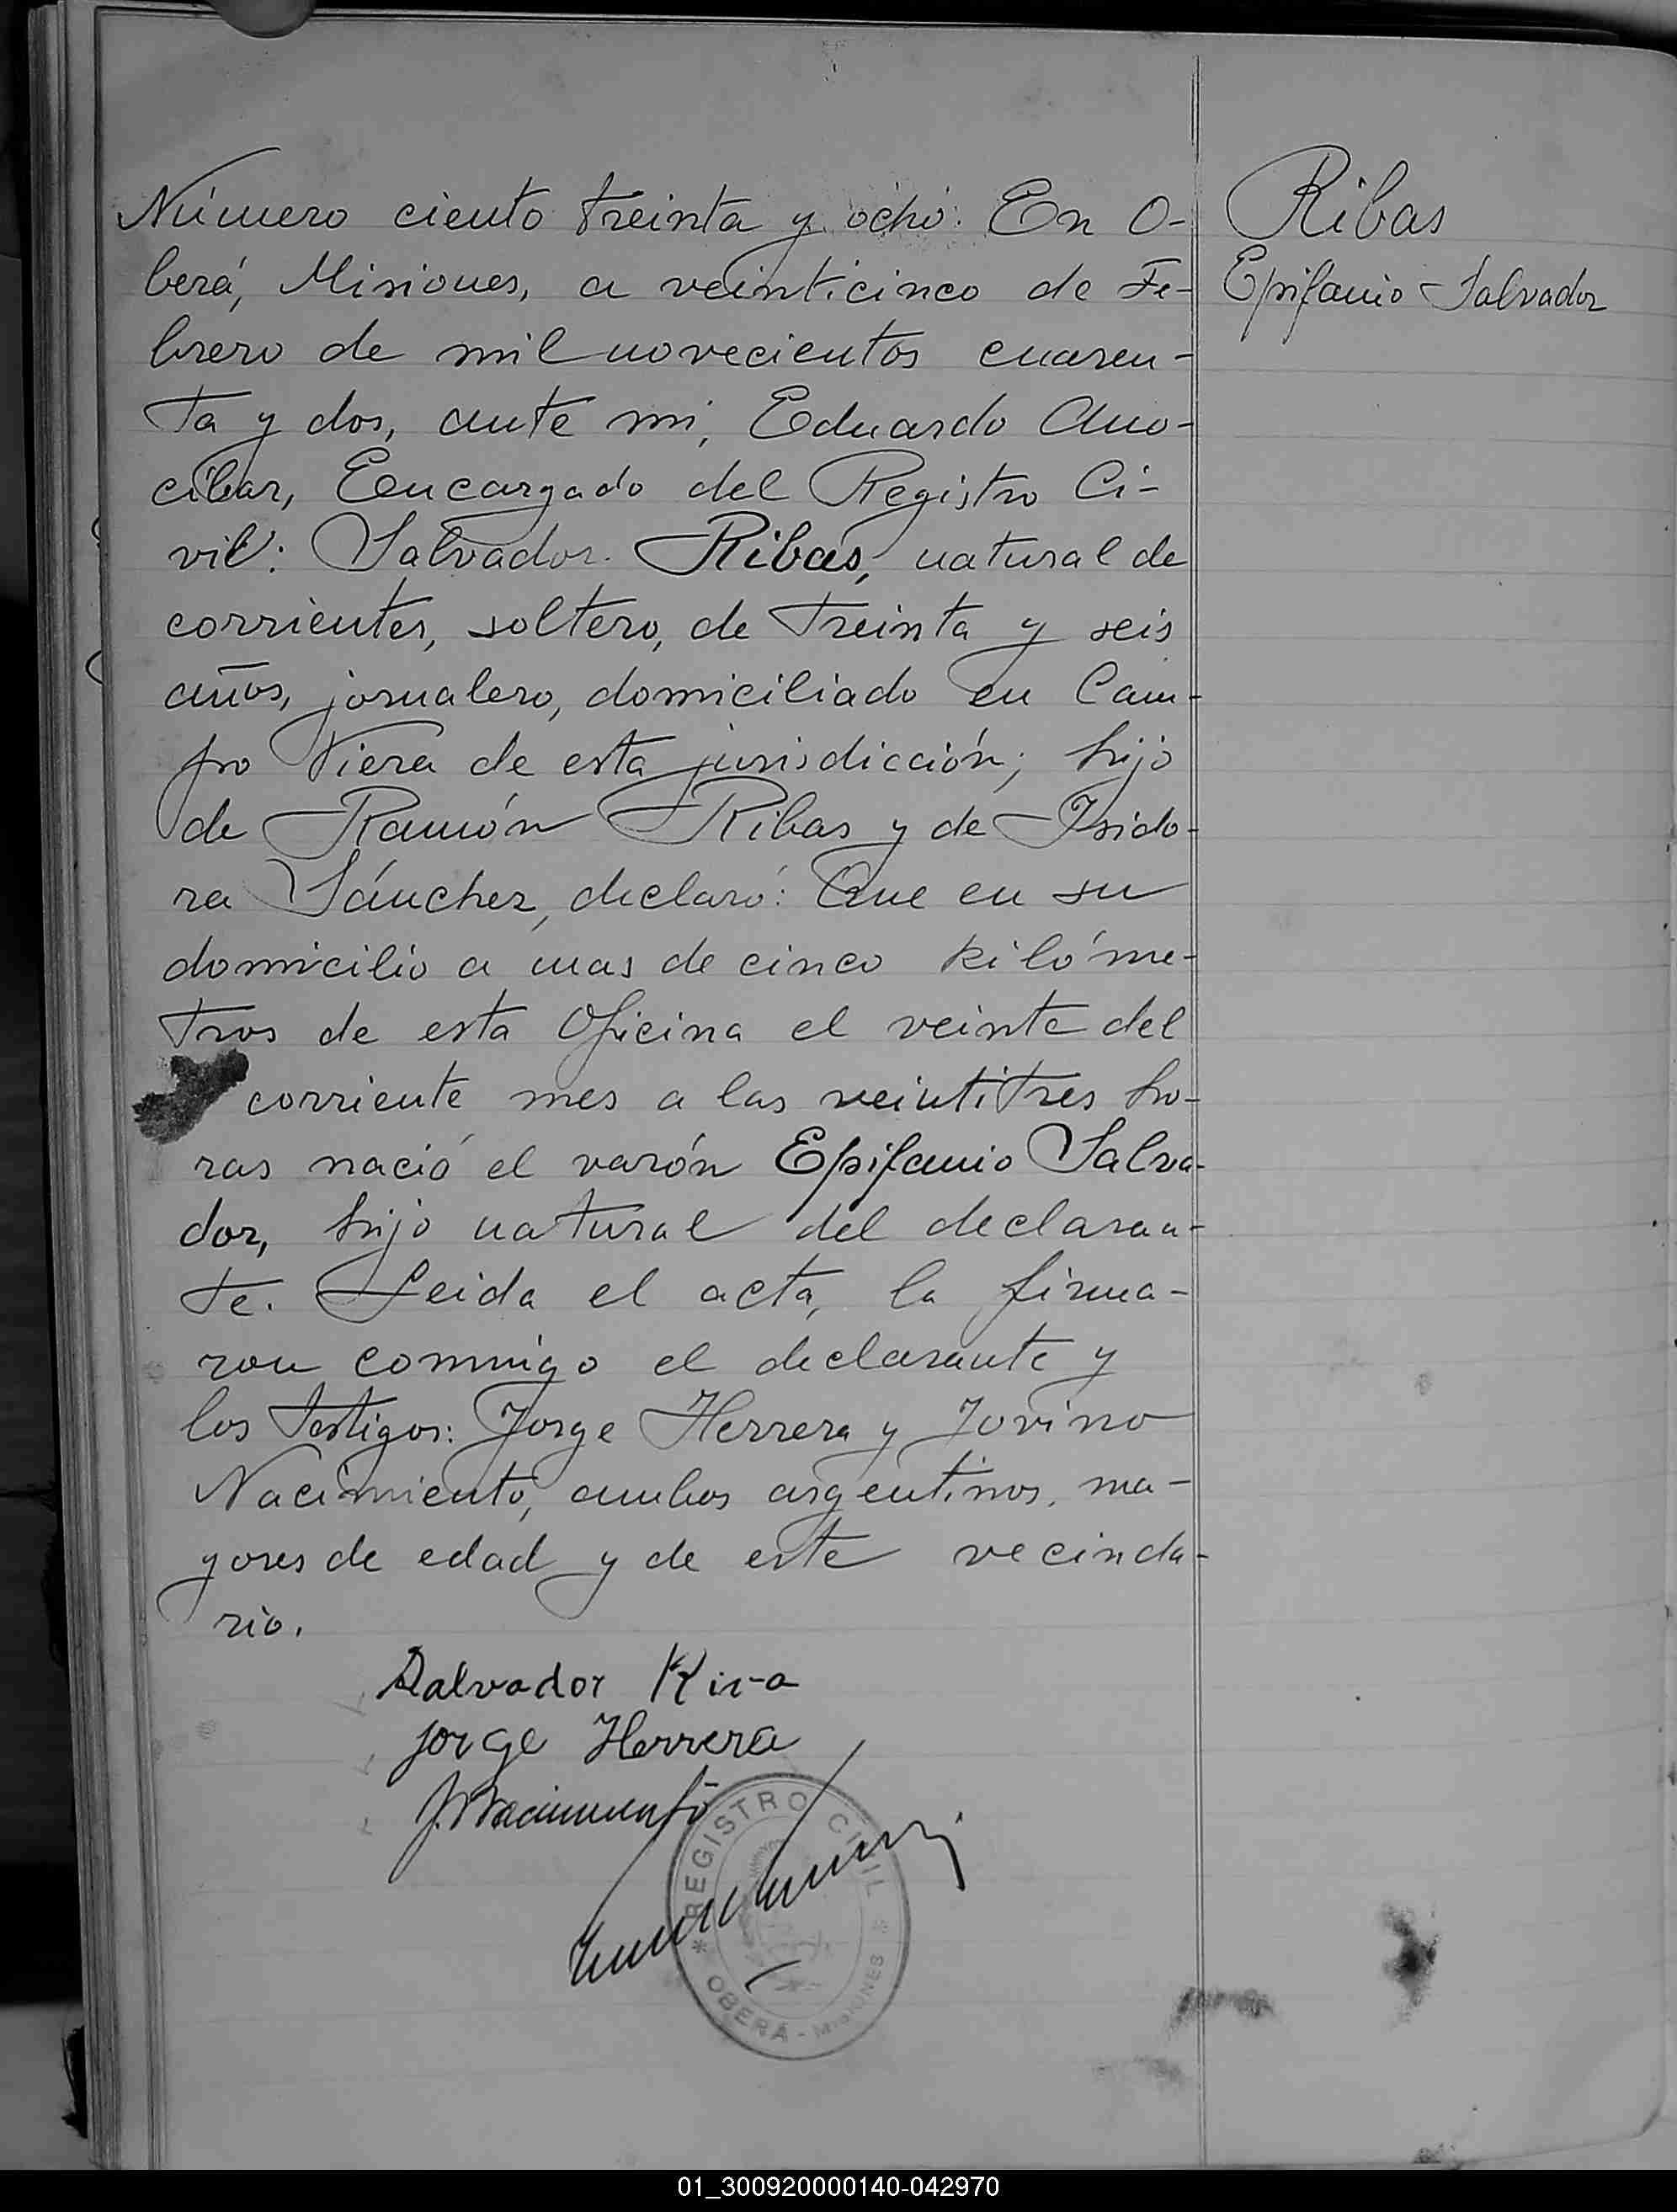 Número ciento treinta y ocho: En O-
berá, Misiones, a veinticinco de Fe-
brero de mil novecientos cuaren-
ta y dos, ante mi, Eduardo Ano-
cibar, Encargado del Registro Ci-
vil: Salvador Ribas, natural de
corrientes, soltero, de treinta y seis
años, jornalero, domiciliado en Cam-
po Viera de esta jurisdicción; hijo
de Ramón Ribas y de Isido-
ra Sánchez, declaró: Que en su
domicilio a mas de cinco kilóme-
tros de esta Oficina el veinte del
corriente mes a las veintitres ho-
ras nació el varón Epifanio Salva-
dor, hijo natural del declaran-
te. Leida el acta, la firma-
ron conmigo el declarante y
los testigos: Jorge Herrera y Jovino
Nacimiento, ambos argentinos, ma-
yores de edad y de este vecinda-
rio.
Ribas
Epifanio Salvador
Salvador
Jorge Herrera
J. Nacimiento
REGISTRO CIVIL
OBERÁ - MISIONES
01_300920000140-042970